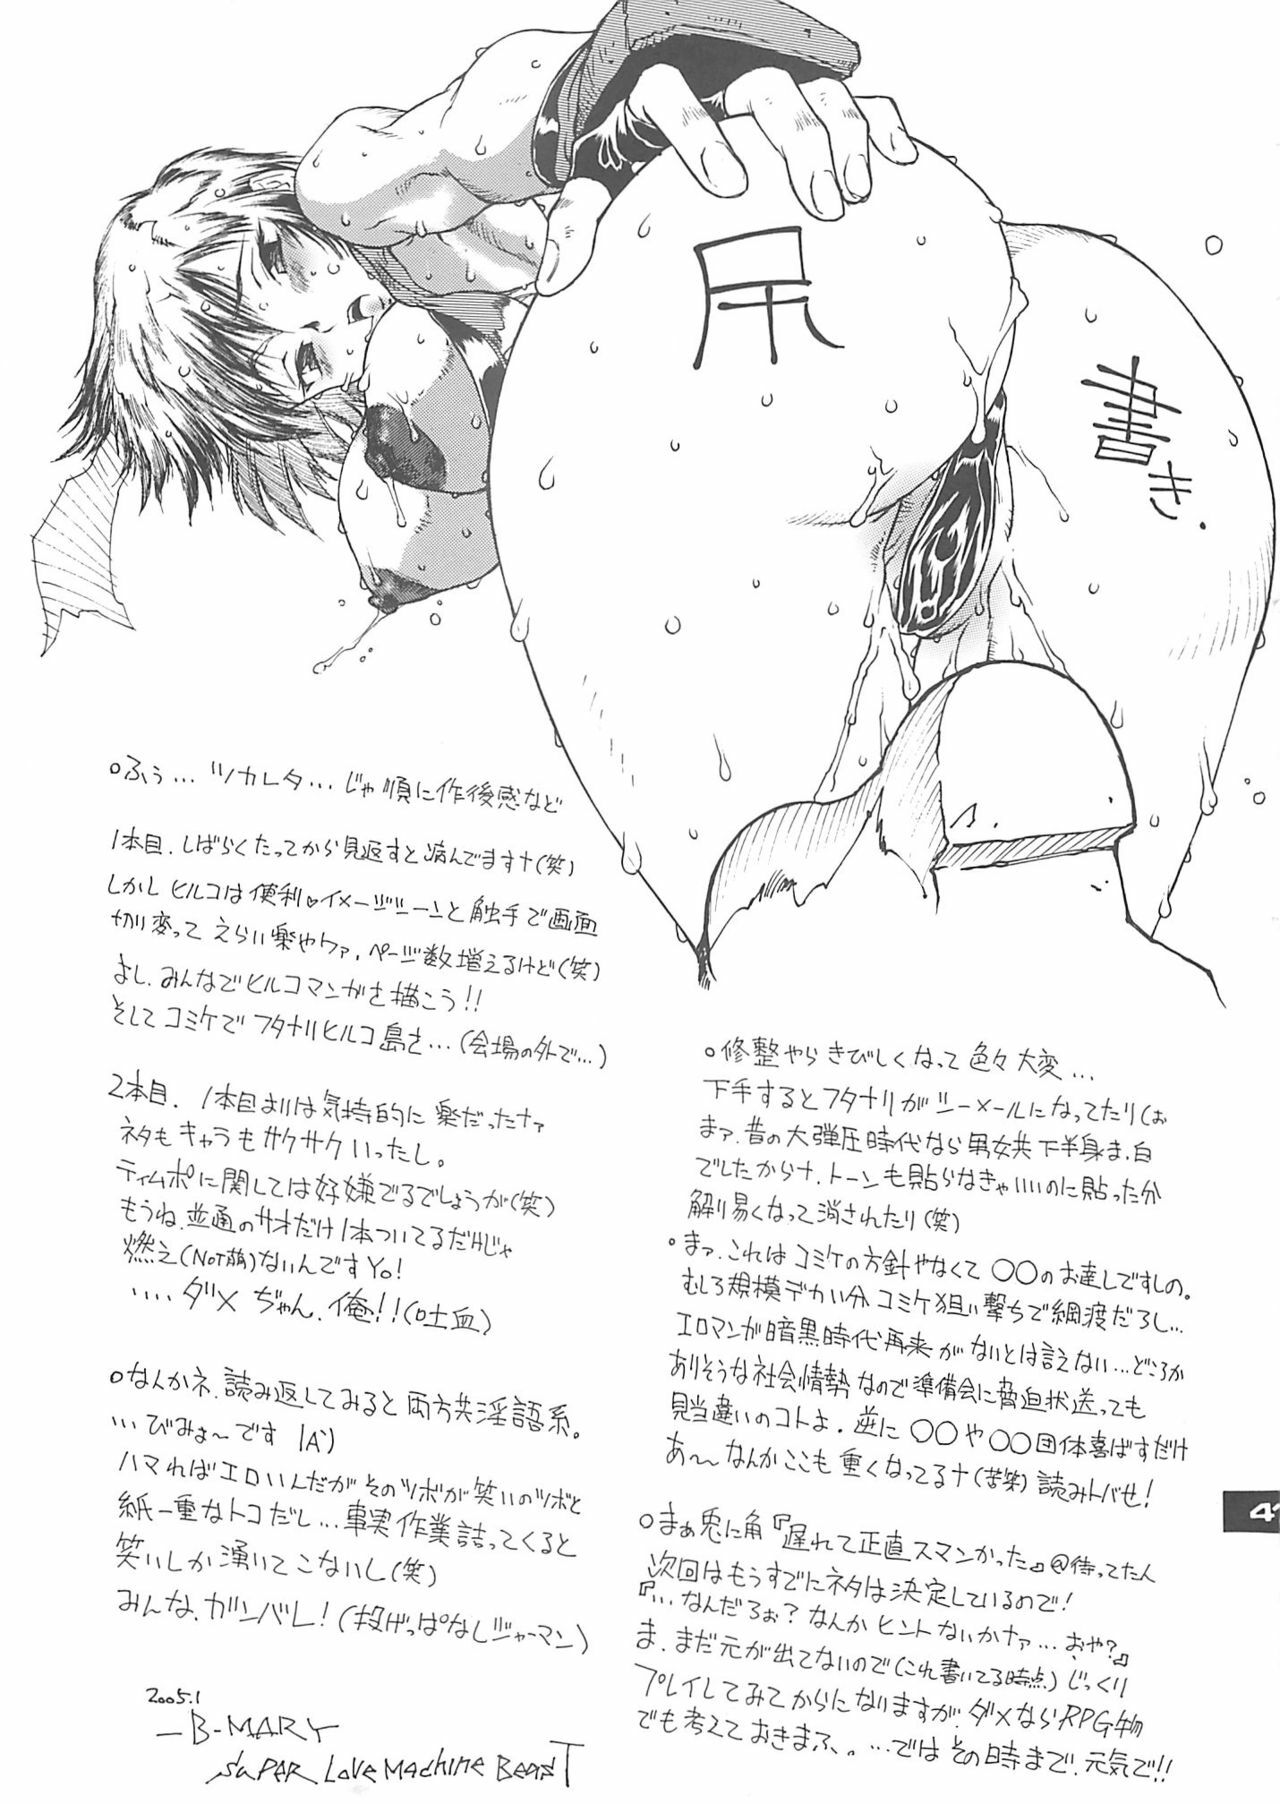 尻
書き.
○ふぅ... ツカレタ... じゃ順に作後感など
1本目. しばらくたってから見返すと病んでますナ(笑)
しかし ヒルコは便利♡イメージシーンと触手で画面
切り変って えらい楽やワァ. ページ数増えるけど(笑)
よし. みんなでヒルコマンガを描こう!!
そして コミケで フタナリヒルコ島を...(会場の外で...)
2本目. 1本目よりは気持的に楽だったナァ
ネタもキャラもサクサクいったし。
ティムポに関しては好嫌でるでしょうが(笑)
もうね. 普通のサオだけ1本ついてるだけじゃ
燃え(NOT萌)ないんですYo!
.... ダメぢゃん. 俺!!(吐血)
○なんかネ. 読み返してみると両方共淫語系。
... びみょ〜です
ハマればエロいんだが そのツボが笑いのツボと
紙一重なトコだし... 事実作業詰ってくると
笑いしか湧いてこないし(笑)
みんな. ガンバレ! (投げっぱなしジャーマン)
2005.1
—B-MARY
SUPER Love Machine Beast
○修整やら きびしくなって 色々大変...
下手するとフタナリがシーメールになってたり(ぉ
まァ. 昔の大弾圧時代なら男女共下半身ま.白
でしたからナ. トーンも貼らなきゃいいのに貼った分
解り易くなって消されたり(笑)
○まァ. これは コミケの方針やなくて ○○のお達しですしの。
むしろ規模デカい分 コミケ狙い撃ちで綱渡だろし...
エロマンガ暗黒時代再来がないとは言えない... どころか
ありそうな社会情勢なので準備会に脅迫状送っても
見当違いのコトよ. 逆に ○○や○○団体喜ばすだけ
あ〜 なんかここも重くなってるナ(苦笑) 読みトバせ!
○まぁ兎に角『遅れて正直スマンかった』@待ってた人
次回はもうすでにネタは決定しているので!
『... なんだろぉ? なんか ヒントないかナァ... おや?』
ま. まだ元が出てないので(これ書いてる時点) じっくり
プレイしてみてからになりますが. ダメなら RPG物
でも考えておきまふ。... では その日時まで. 元気で!!
41